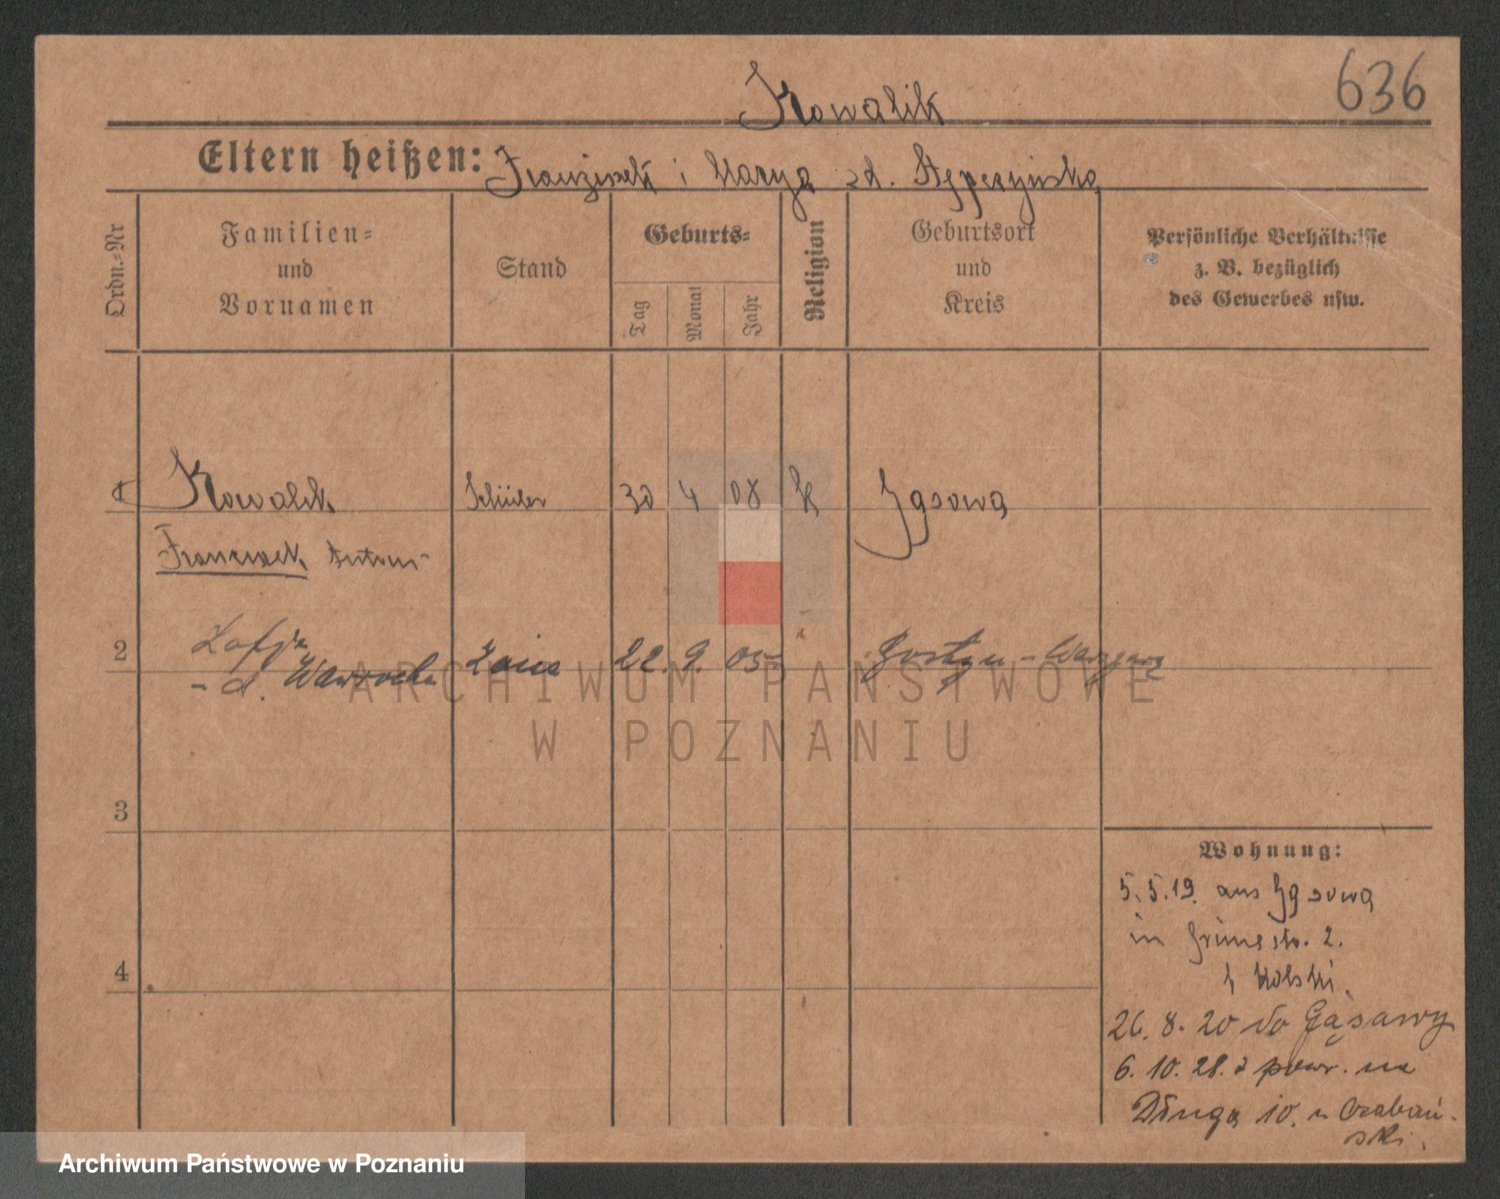 636
Kowalik
Eltern heißen: Franziszek i Marya zd. Stępczyńska
Ordn.-Nr
Familien-
und
Vornamen
Stand
Geburts-
Tag
Monat
Jahr
Religion
Geburtsort
und
Kreis
Persönliche Verhältnisse
z. B. bezüglich
des Gewerbes usw.
1 Kowalik Schüler 30 4 08 k Gąsawa
Franciszek Antoni
2 Zofja
22. 9. 05 Gostyn
3
4
Wohnung:
5.5.19. aus Gąsawa
in Grünestr. 2.
26. 8. 20 do Gąsawy
6. 10. 28. z powr. na
Długa 10.
ARCHIWUM PAŃSTWOWE
W POZNANIU
Archiwum Państwowe w Poznaniu